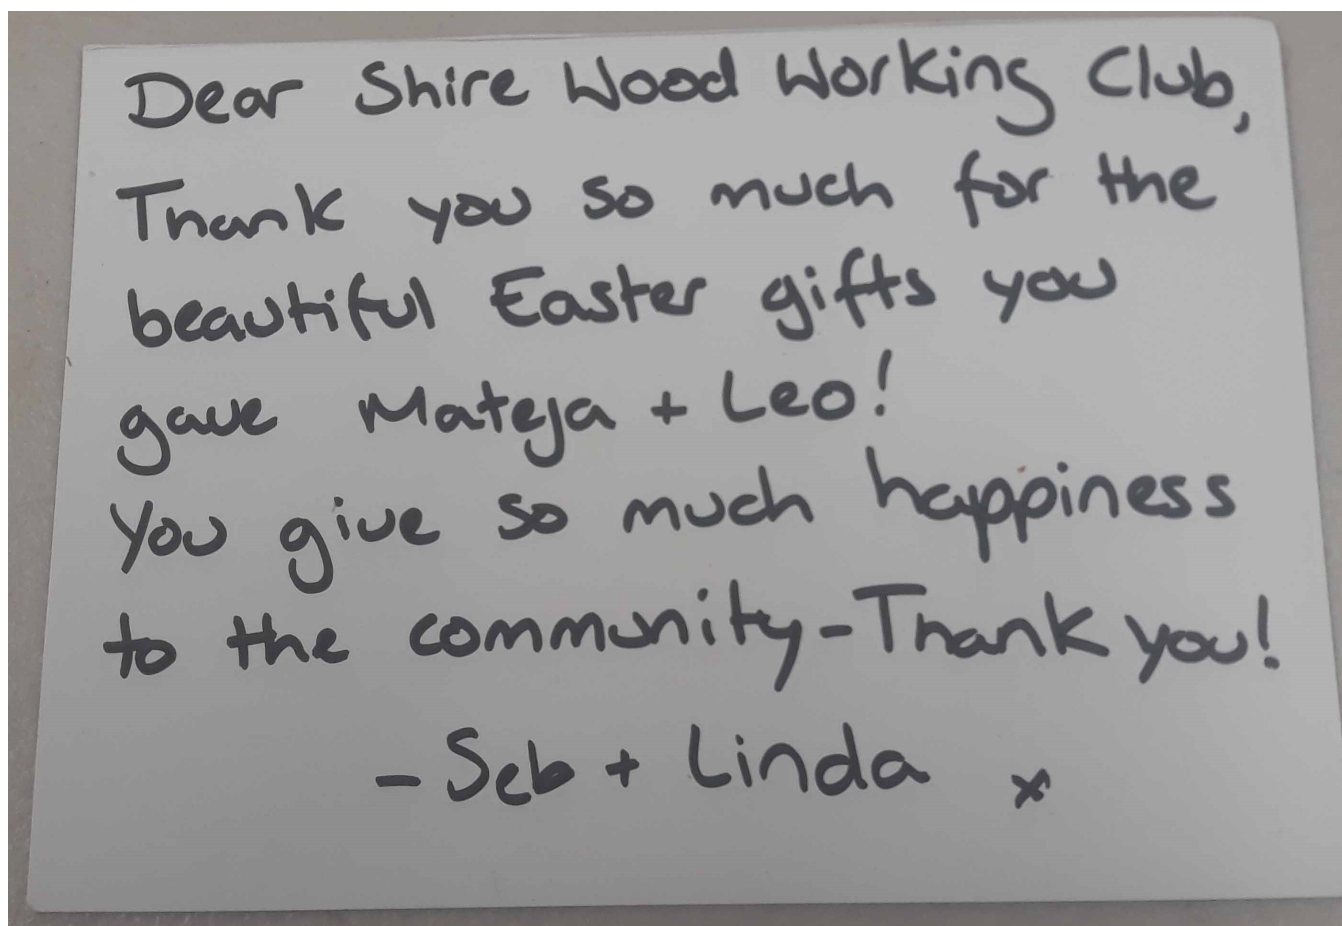 Dear Shire Wood Working Club,
Thank you so much for the
beautiful Easter gifts you
gave Mateja + Leo!
You give so much happiness
to the community - Thank you!
- Seb + Linda x